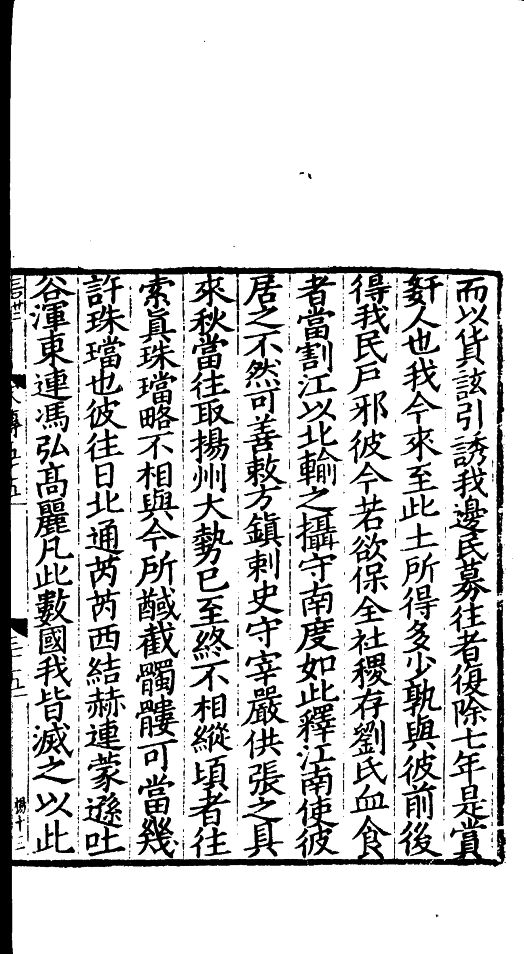 而以貨詃引誘我邊民募往者復除七年是賞
姧人也我今來至此土所得多少孰與彼前後
得我民戶邪彼今若欲保全社稷存劉氏血食
者當割江以北輸之攝守南度如此釋江南使彼
居之不然可善敕方鎮刺史守宰嚴供張之具
來秋當往取揚州大勢已至終不相縱頃者往
索眞珠璫略不相與今所馘截髑髏可當幾
許珠璫也彼往日北通芮芮西結赫連蒙遜吐
谷渾東連馮弘高麗凡此數國我皆滅之以此
傳五十五